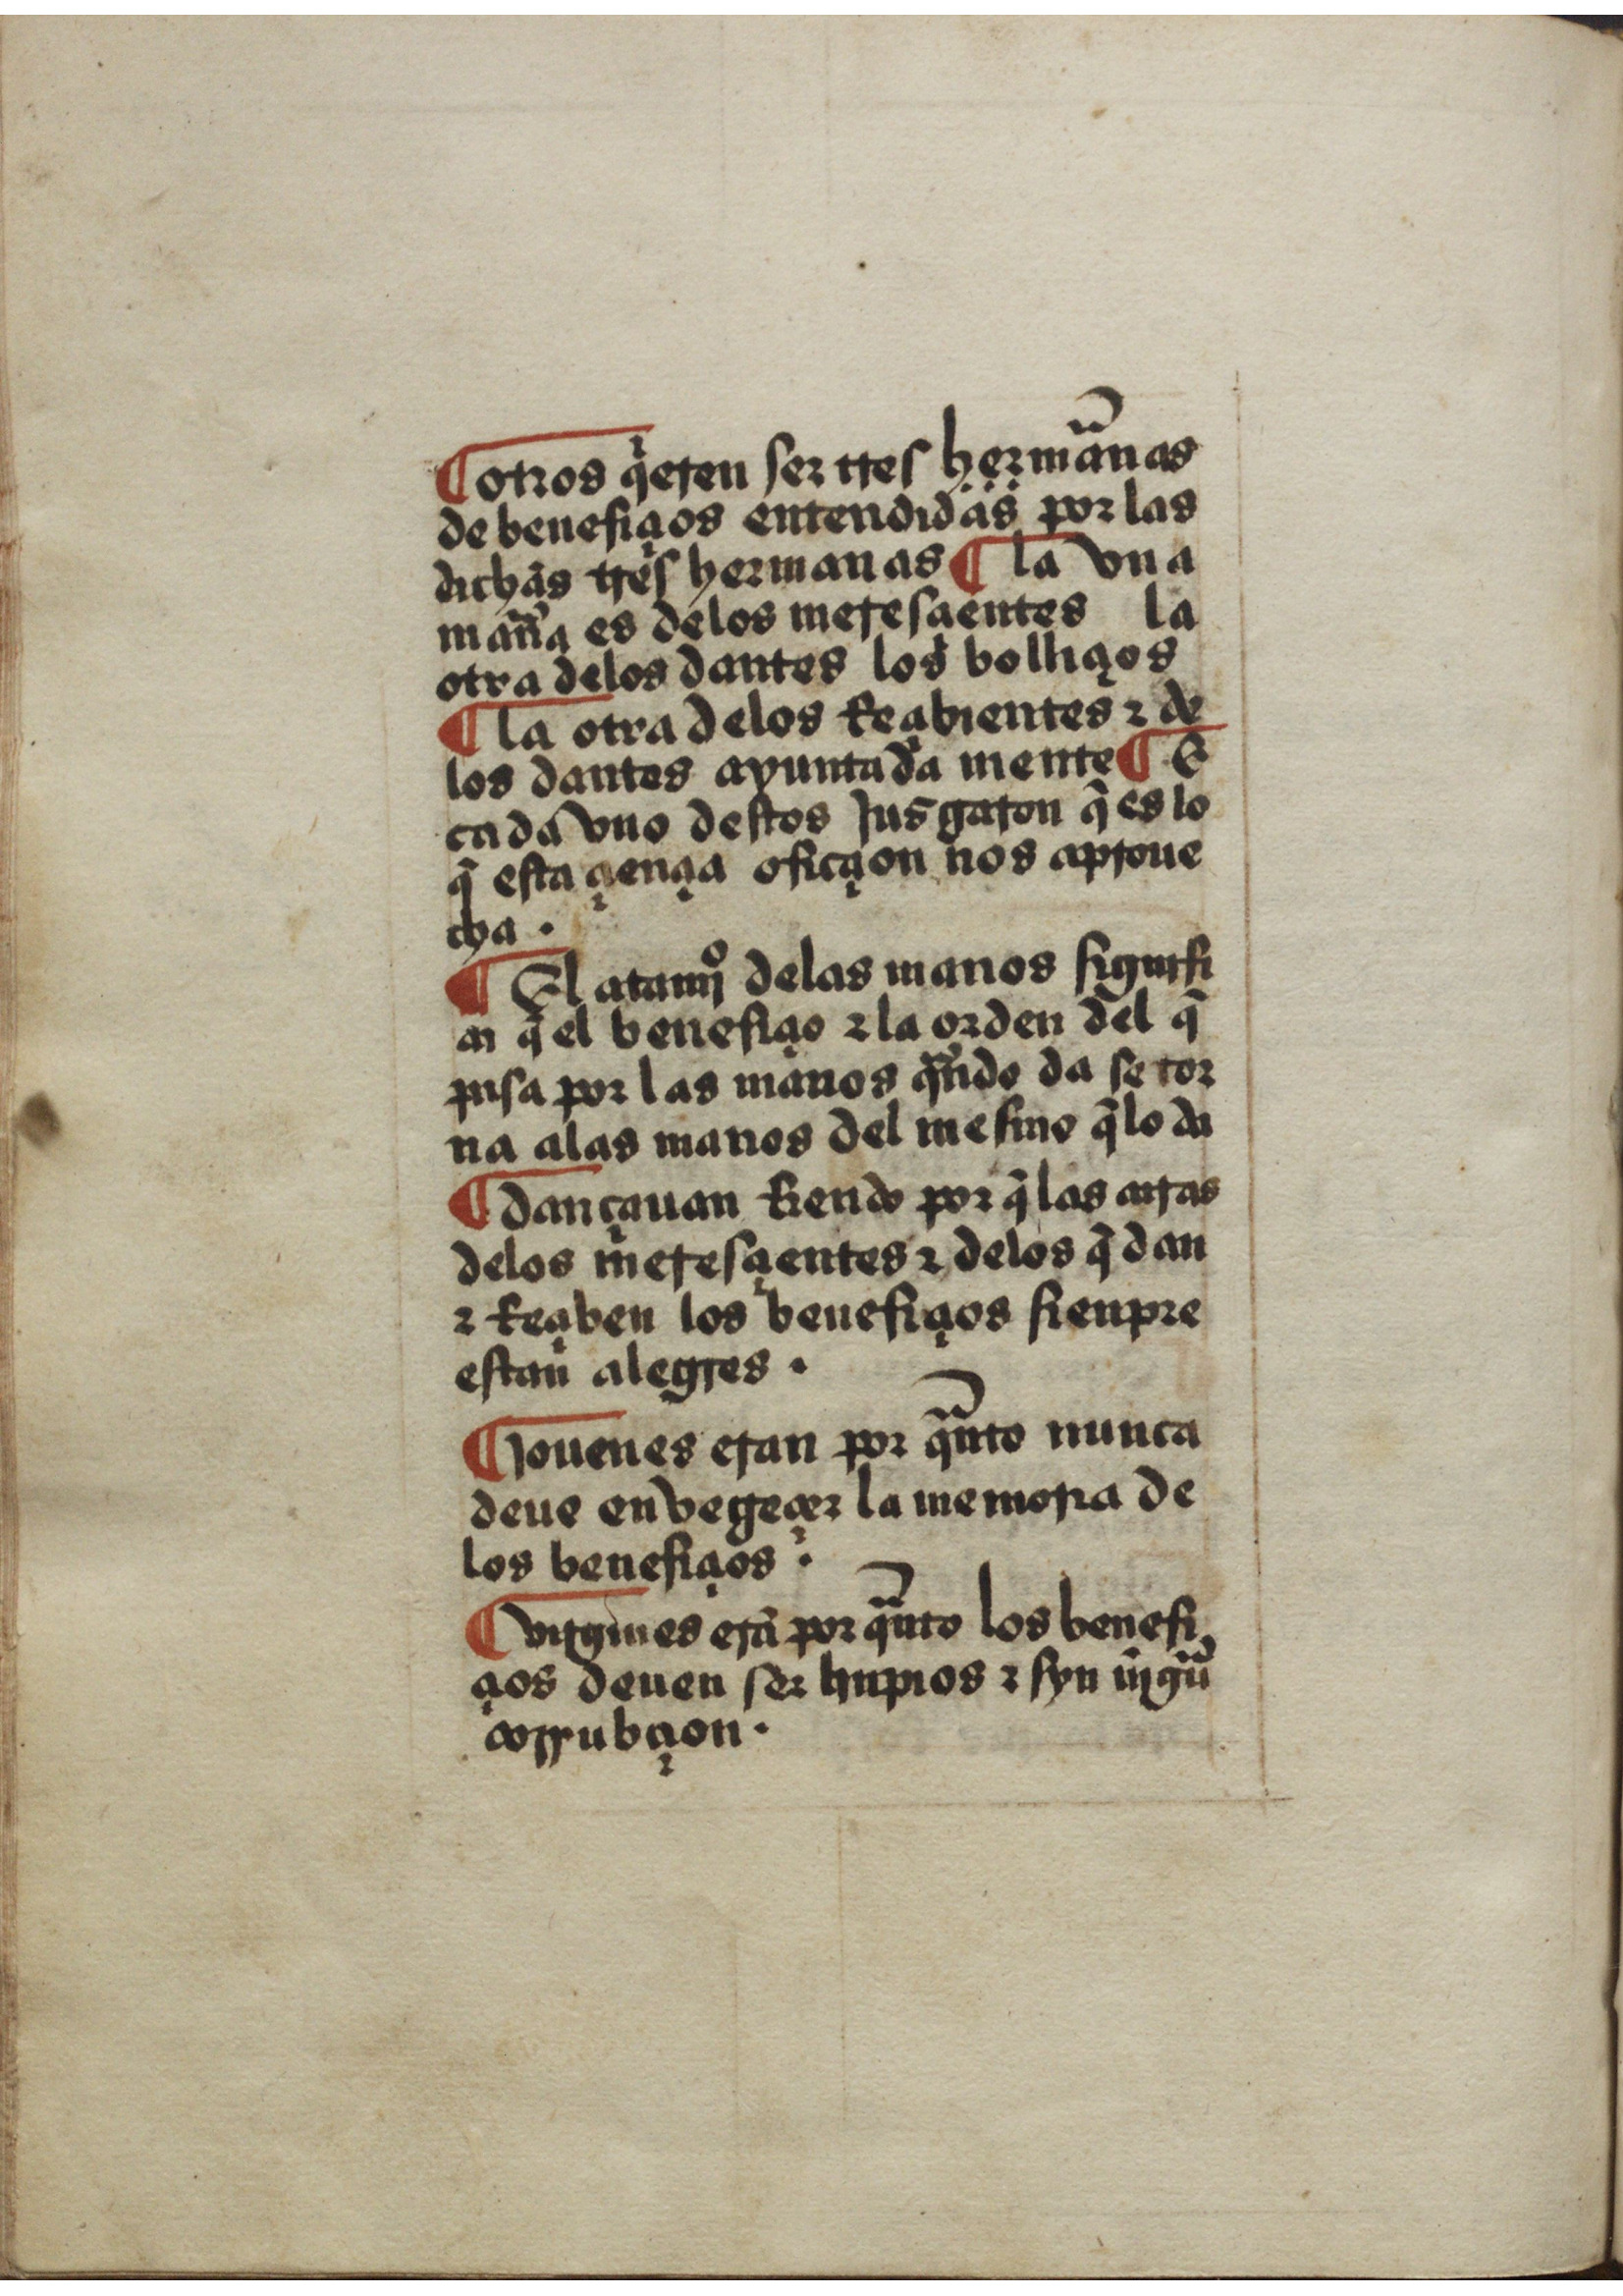 ¶ otros q̃ieren ser tres herma͂nas
de benefiçios entendidas por las
dichas tres hermanas ¶ la vna
mañ̃a es delos meresçientes la
otra delos dantes los bolliçios
¶ la otra delos Reçibientes ⁊ de
los dantes ayuntada mente ¶ E
cada vno destos Jusgaron q̃ es lo
q̃ esta çiençia ofiçion nos aproue
cha .
¶ El atamjº delas manos signifi
ca q̃ el benefiçio ⁊ la orden del q̃
pasa por las manos qñdo da se tor
na alas manos del mesmo q̃ lo da
¶ dançauan Riendo por q̃ las caras
delos meresçientes ⁊ delos q̃ dan
⁊ Reçiben los benefiçios sienpre
estan alegres .
¶ Jouenes eran por qñto nunca
deue envegeçer la memoria de
los benefiçios .
¶ virgines erã por qñto los benefi
çios deuen ser linpios ⁊ syn nīgũ
corrubçion .